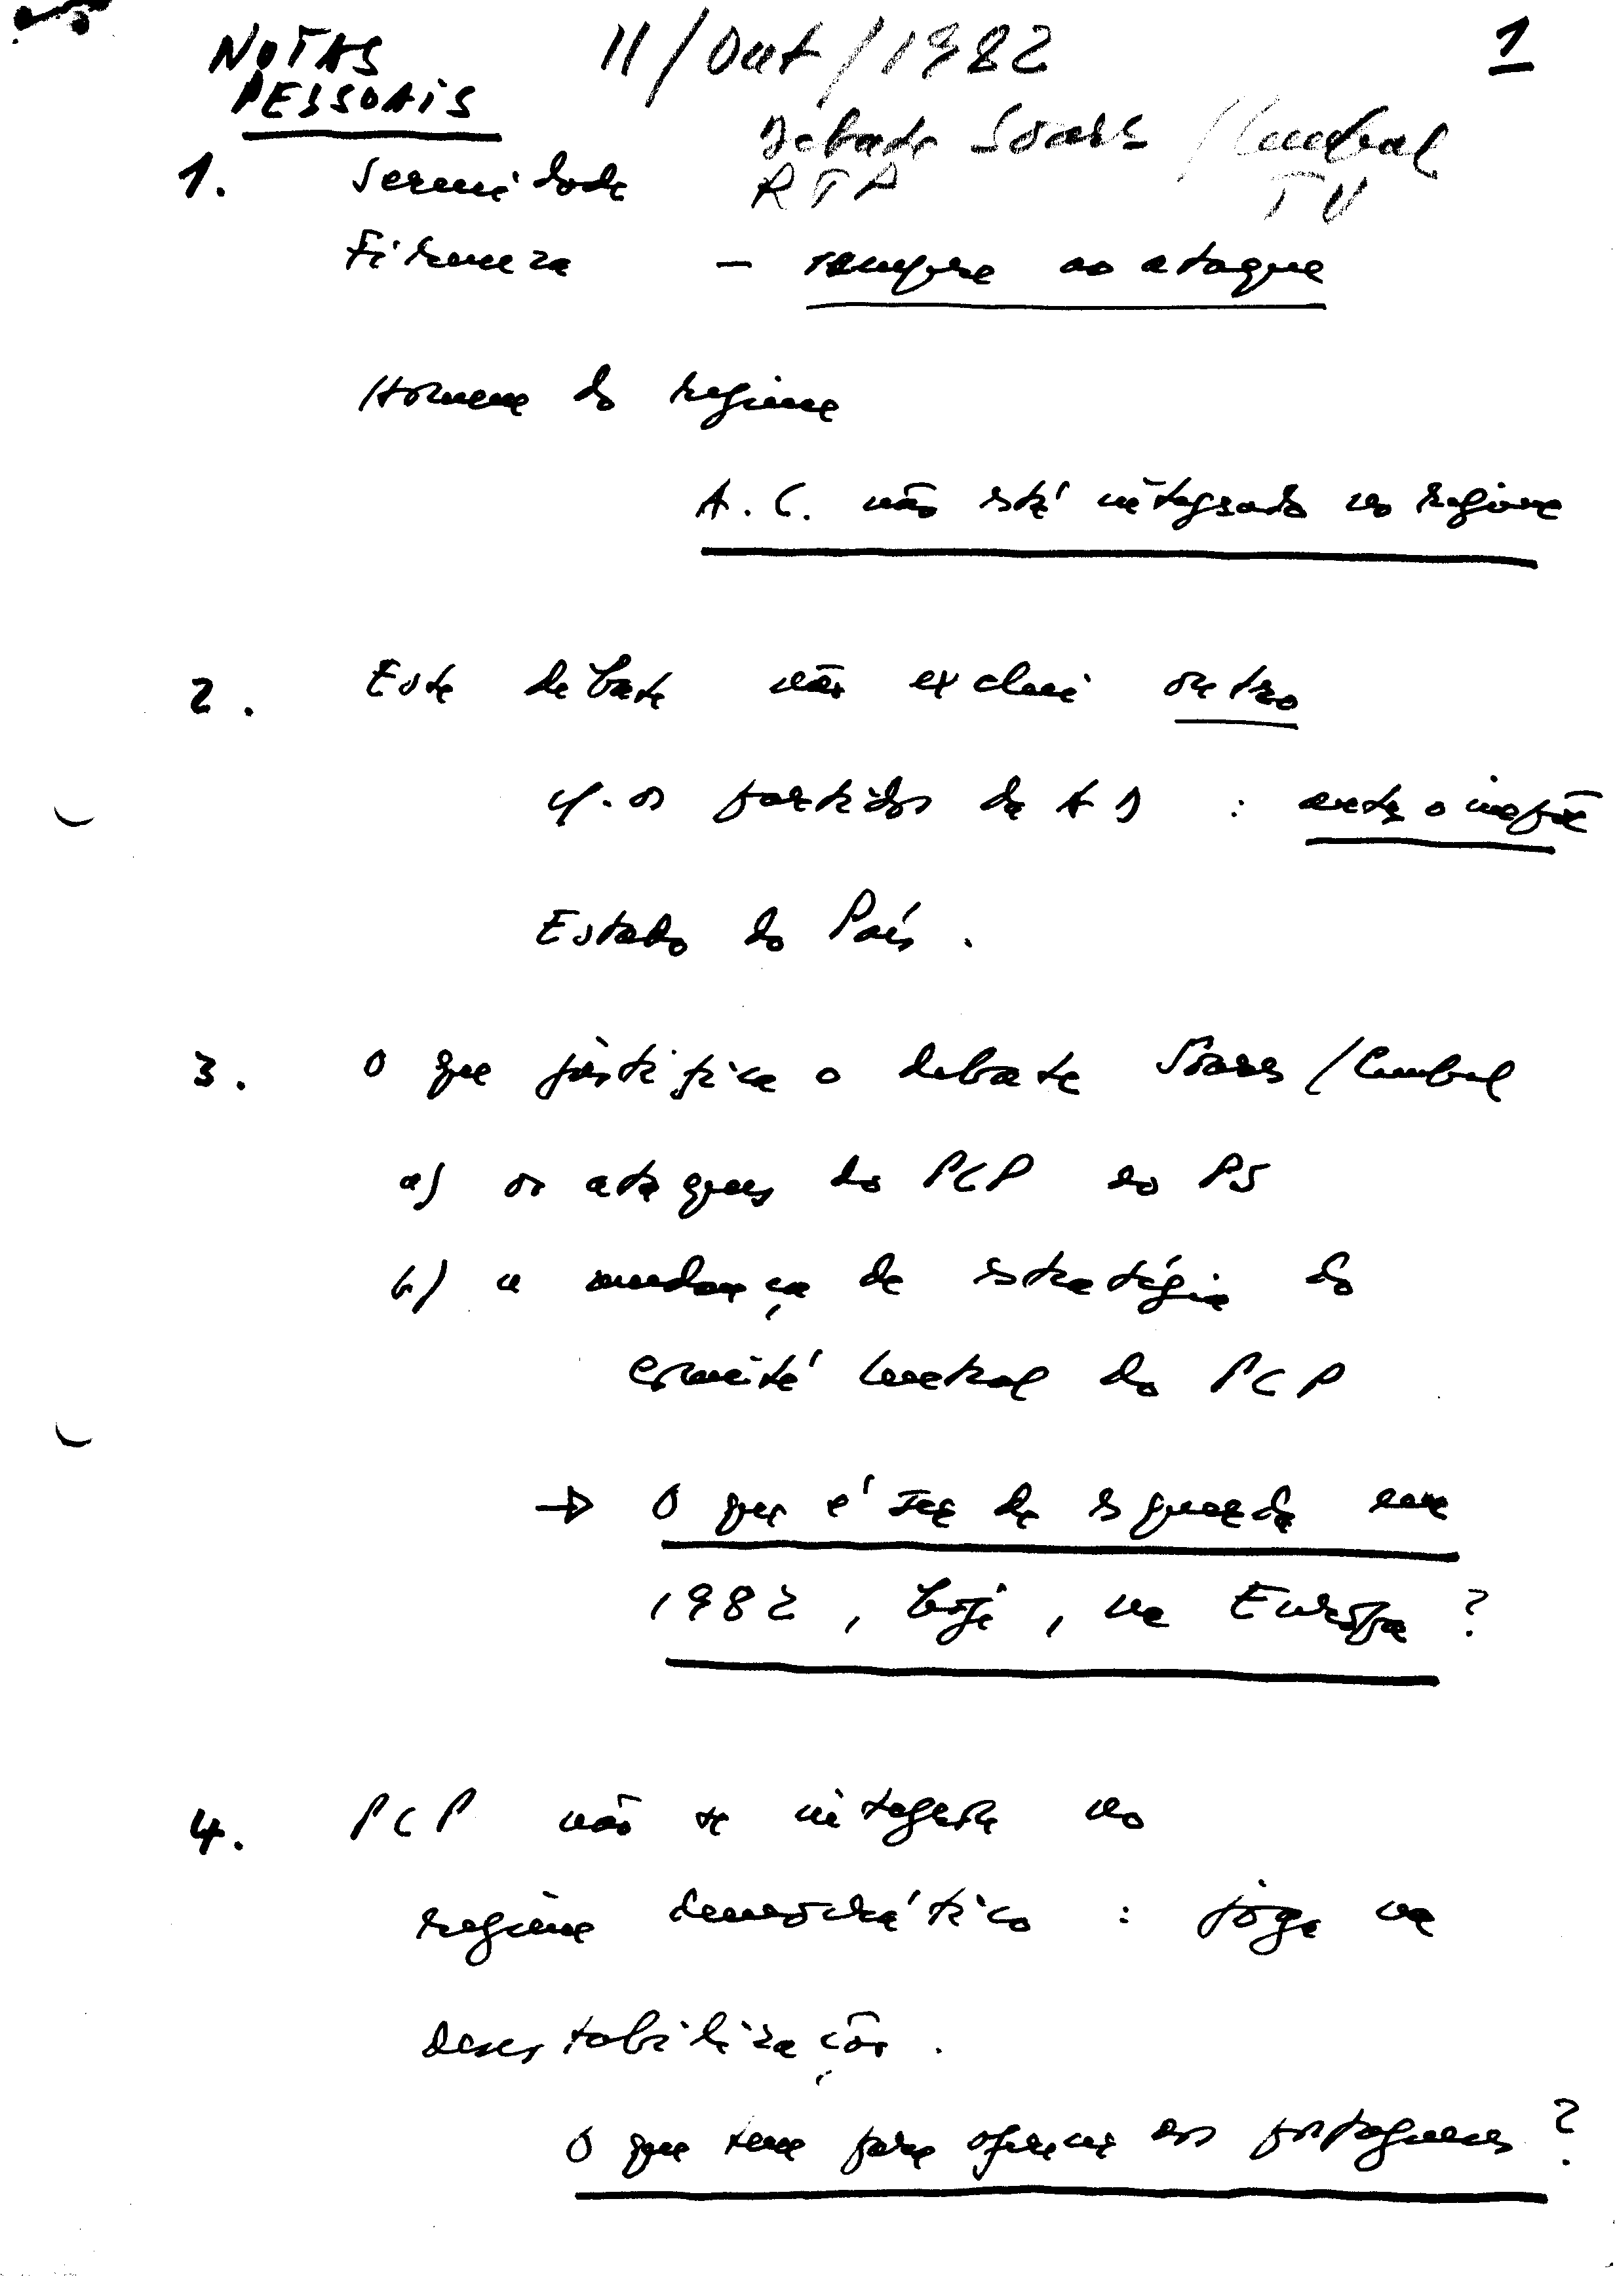 NOTAS 11/Out/1982 1
PESSOAIS
Debate Soares / Cunhal
1. Serenidade RTP TV
Firmeza — sempre ao ataque
Homem do regime
A. C. não está integrado no regime
2. Este debate não exclui outro
c/. os partidos da AD : antes o impõe
Estado do País.
3. O que justifica o debate Soares / Cunhal
a) os ataques do PCP ao PS
b) a mudança de estratégia do
comité Central do PCP
→ O que é ser de esquerda em
1982, hoje, na Europa?
4. PCP não se integra no
regime democrático : joga na
desestabilização.
O que tem para oferecer aos portugueses?